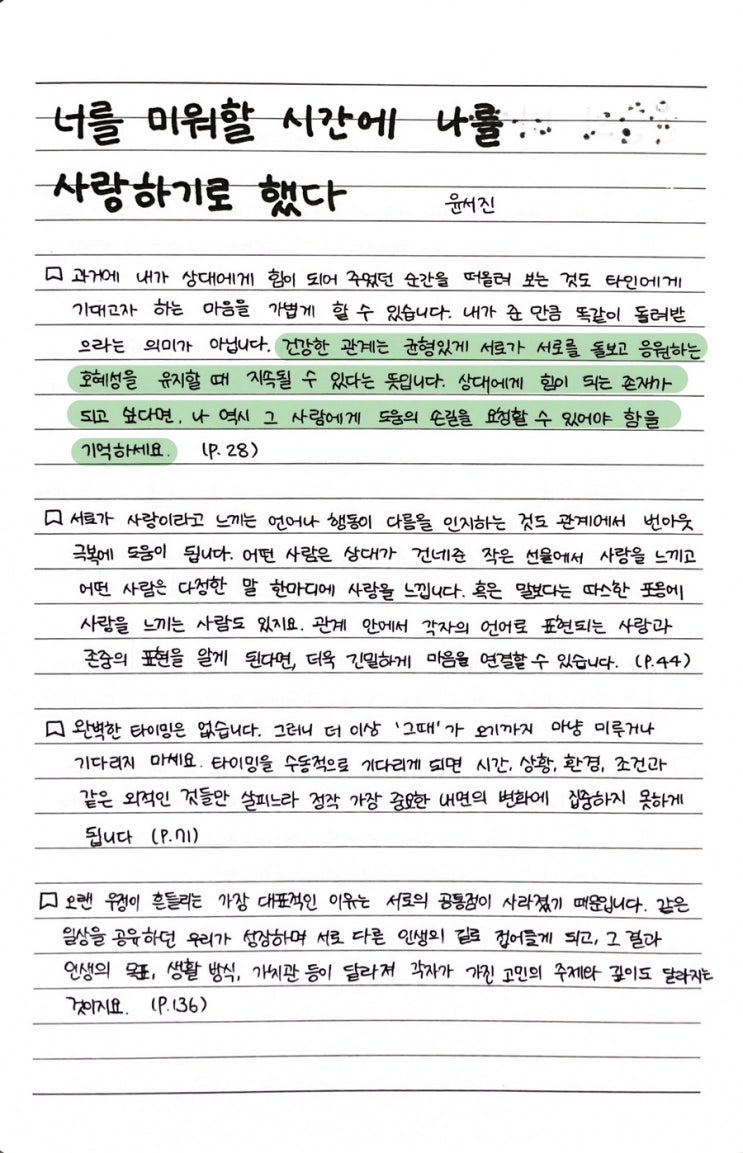 너를 미워할 시간에 나를
사랑하기로 했다 윤서진
과거에 내가 상대에게 힘이 되어 주었던 순간을 떠올려 보는 것도 타인에게
기대고자 하는 마음을 가볍게 할 수 있습니다. 내가 준 만큼 똑같이 돌려받
으라는 의미가 아닙니다. 건강한 관계는 균형있게 서로가 서로를 돌보고 응원하는
호혜성을 유지할 때 지속될 수 있다는 뜻입니다. 상대에게 힘이 되는 존재가
되고 싶다면, 나 역시 그 사람에게 도움의 손길을 요청할 수 있어야 함을
기억하세요. (P.28)
서로가 사랑이라고 느끼는 언어나 행동이 다름을 인지하는 것도 관계에서 번아웃
극복에 도움이 됩니다. 어떤 사람은 상대가 건네준 작은 선물에서 사랑을 느끼고
어떤 사람은 다정한 말 한마디에 사랑을 느낍니다. 혹은 말보다는 따스한 포옹에
사랑을 느끼는 사람도 있지요. 관계 안에서 각자의 언어로 표현되는 사랑과
존중의 표현을 알게 된다면, 더욱 긴밀하게 마음을 연결할 수 있습니다. (P.44)
완벽한 타이밍은 없습니다. 그러니 더 이상 '그때'가 오기까지 마냥 미루거나
기다리지 마세요. 타이밍을 수동적으로 기다리게 되면 시간, 상황, 환경, 조건과
같은 외적인 것들만 살피느라 정작 가장 중요한 내면의 변화에 집중하지 못하게
됩니다 (P.71)
오랜 우정이 흔들리는 가장 대표적인 이유는 서로의 공통점이 사라졌기 때문입니다. 같은
일상을 공유하던 우리가 성장하며 서로 다른 인생의 길로 접어들게 되고, 그 결과
인생의 목표, 생활 방식, 가치관 등이 달라져 각자가 가진 고민의 주제와 깊이도 달라지는
것이지요. (P.136)